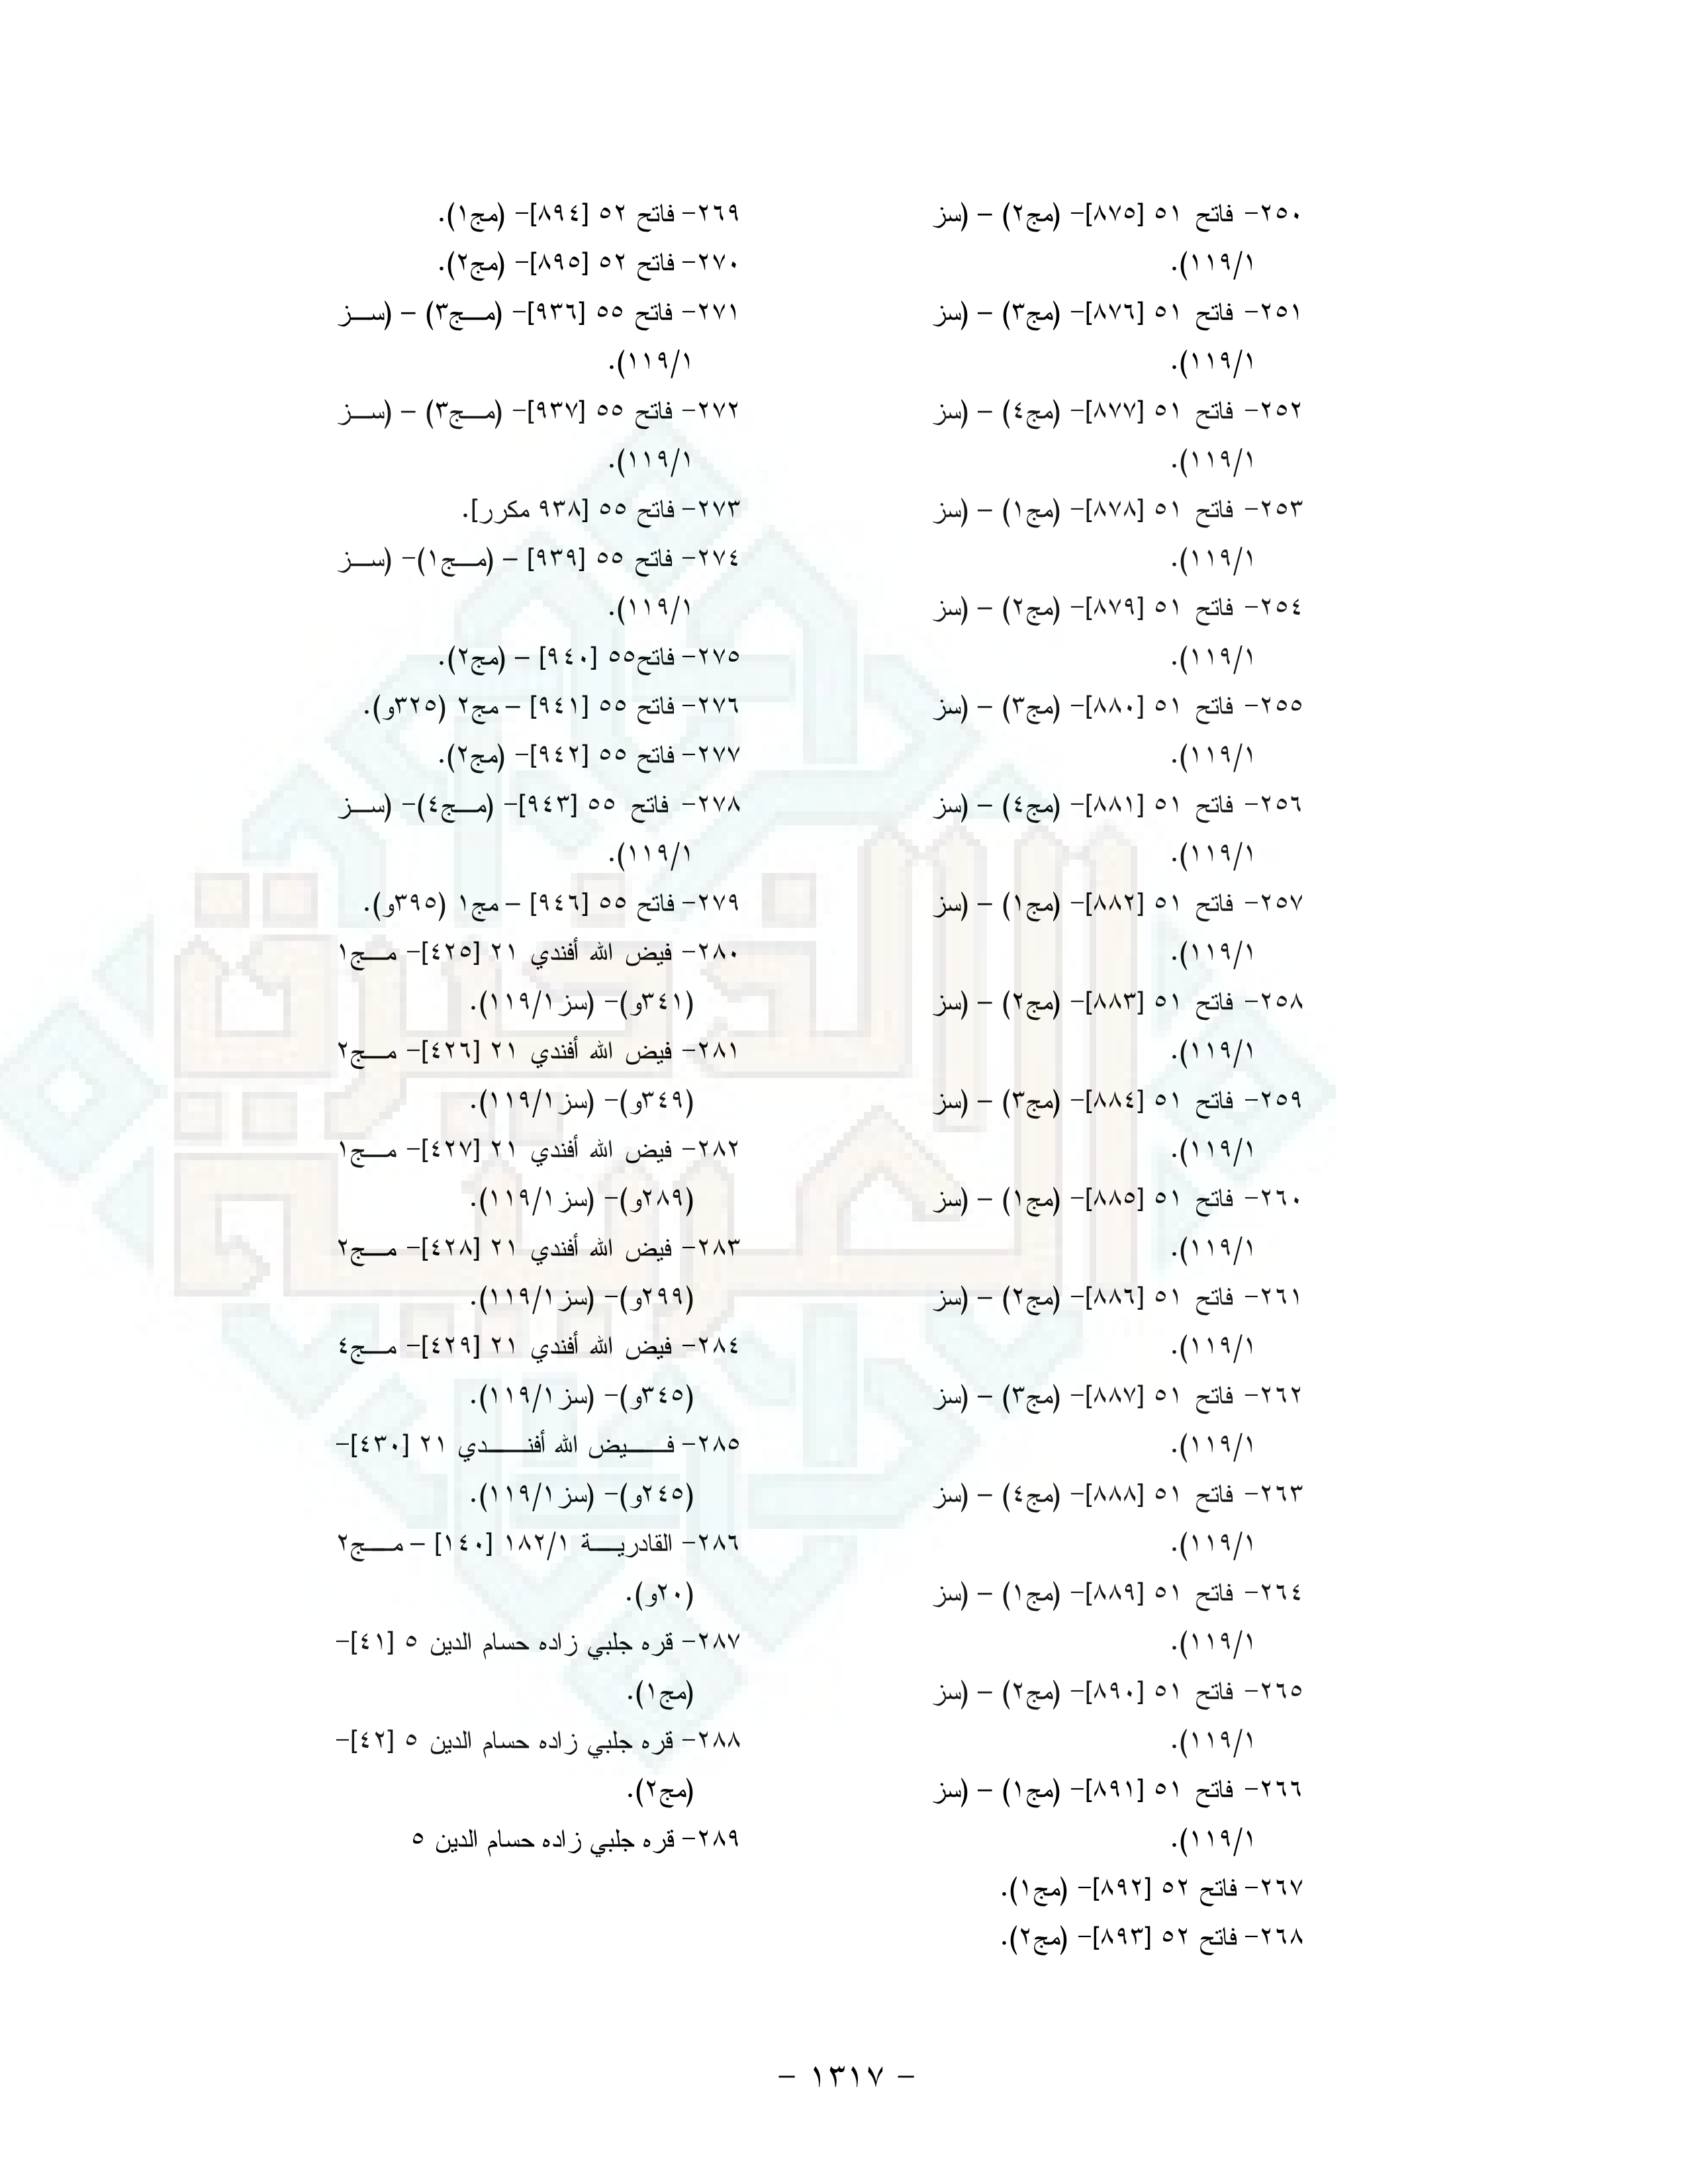 ٢٥٠- فاتح ٥١ [٨٧٥]- (مج٢) – (سز
١١٩/١).
٢٥١- فاتح ٥١ [٨٧٦]- (مج٣) – (سز
١١٩/١).
٢٥٢- فاتح ٥١ [٨٧٧]- (مج٤) – (سز
١١٩/١).
٢٥٣- فاتح ٥١ [٨٧٨]- (مج١) – (سز
١١٩/١).
٢٥٤- فاتح ٥١ [٨٧٩]- (مج٢) – (سز
١١٩/١).
٢٥٥- فاتح ٥١ [٨٨٠]- (مج٣) – (سز
١١٩/١).
٢٥٦- فاتح ٥١ [٨٨١]- (مج٤) – (سز
١١٩/١).
٢٥٧- فاتح ٥١ [٨٨٢]- (مج١) – (سز
١١٩/١).
٢٥٨- فاتح ٥١ [٨٨٣]- (مج٢) – (سز
١١٩/١).
٢٥٩- فاتح ٥١ [٨٨٤]- (مج٣) – (سز
١١٩/١).
٢٦٠- فاتح ٥١ [٨٨٥]- (مج١) – (سز
١١٩/١).
٢٦١- فاتح ٥١ [٨٨٦]- (مج٢) – (سز
١١٩/١).
٢٦٢- فاتح ٥١ [٨٨٧]- (مج٣) – (سز
١١٩/١).
٢٦٣- فاتح ٥١ [٨٨٨]- (مج٤) – (سز
١١٩/١).
٢٦٤- فاتح ٥١ [٨٨٩]- (مج١) – (سز
١١٩/١).
٢٦٥- فاتح ٥١ [٨٩٠]- (مج٢) – (سز
١١٩/١).
٢٦٦- فاتح ٥١ [٨٩١]- (مج١) – (سز
١١٩/١).
٢٦٧- فاتح ٥٢ [٨٩٢]- (مج١).
٢٦٨- فاتح ٥٢ [٨٩٣]- (مج٢).
٢٦٩- فاتح ٥٢ [٨٩٤]- (مج١).
٢٧٠- فاتح ٥٢ [٨٩٥]- (مج٢).
٢٧١- فاتح ٥٥ [٩٣٦]- (مـج٣) – (سـز
١١٩/١).
٢٧٢- فاتح ٥٥ [٩٣٧]- (مـج٣) – (سـز
١١٩/١).
٢٧٣- فاتح ٥٥ [٩٣٨ مكرر].
٢٧٤- فاتح ٥٥ [٩٣٩] – (مـج١)- (سـز
١١٩/١).
٢٧٥- فاتح٥٥ [٩٤٠] – (مج٢).
٢٧٦- فاتح ٥٥ [٩٤١] – مج٢ (٣٢٥و).
٢٧٧- فاتح ٥٥ [٩٤٢]- (مج٢).
٢٧٨- فاتح ٥٥ [٩٤٣]- (مـج٤)- (سـز
١١٩/١).
٢٧٩- فاتح ٥٥ [٩٤٦] – مج١ (٣٩٥و).
٢٨٠- فيض الله أفندي ٢١ [٤٢٥]- مـج١
(٣٤١و)- (سز١١٩/١).
٢٨١- فيض الله أفندي ٢١ [٤٢٦]- مـج٢
(٣٤٩و)- (سز١١٩/١).
٢٨٢- فيض الله أفندي ٢١ [٤٢٧]- مـج١
(٢٨٩و)- (سز١١٩/١).
٢٨٣- فيض الله أفندي ٢١ [٤٢٨]- مـج٢
(٢٩٩و)- (سز١١٩/١).
٢٨٤- فيض الله أفندي ٢١ [٤٢٩]- مـج٤
(٣٤٥و)- (سز١١٩/١).
٢٨٥- فـــيض الله أفنـــدي ٢١ [٤٣٠]-
(٢٤٥و)- (سز١١٩/١).
٢٨٦- القادريـــة ١٨٢/١ [١٤٠] – مـــج٢
(٢٠و).
٢٨٧- قره جلبي زاده حسام الدين ٥ [٤١]-
(مج١).
٢٨٨- قره جلبي زاده حسام الدين ٥ [٤٢]-
(مج٢).
٢٨٩- قره جلبي زاده حسام الدين ٥
- ١٣١٧ -
الذخيرة
العربية